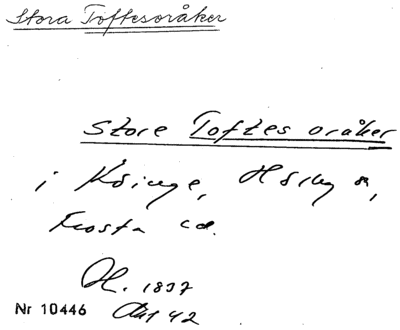 Stora Toftesoråker
Store Toftes oråker
i Köinge, Hörby sn,
Frosta hd.
H. 1837
Nr 10446 Akt 42